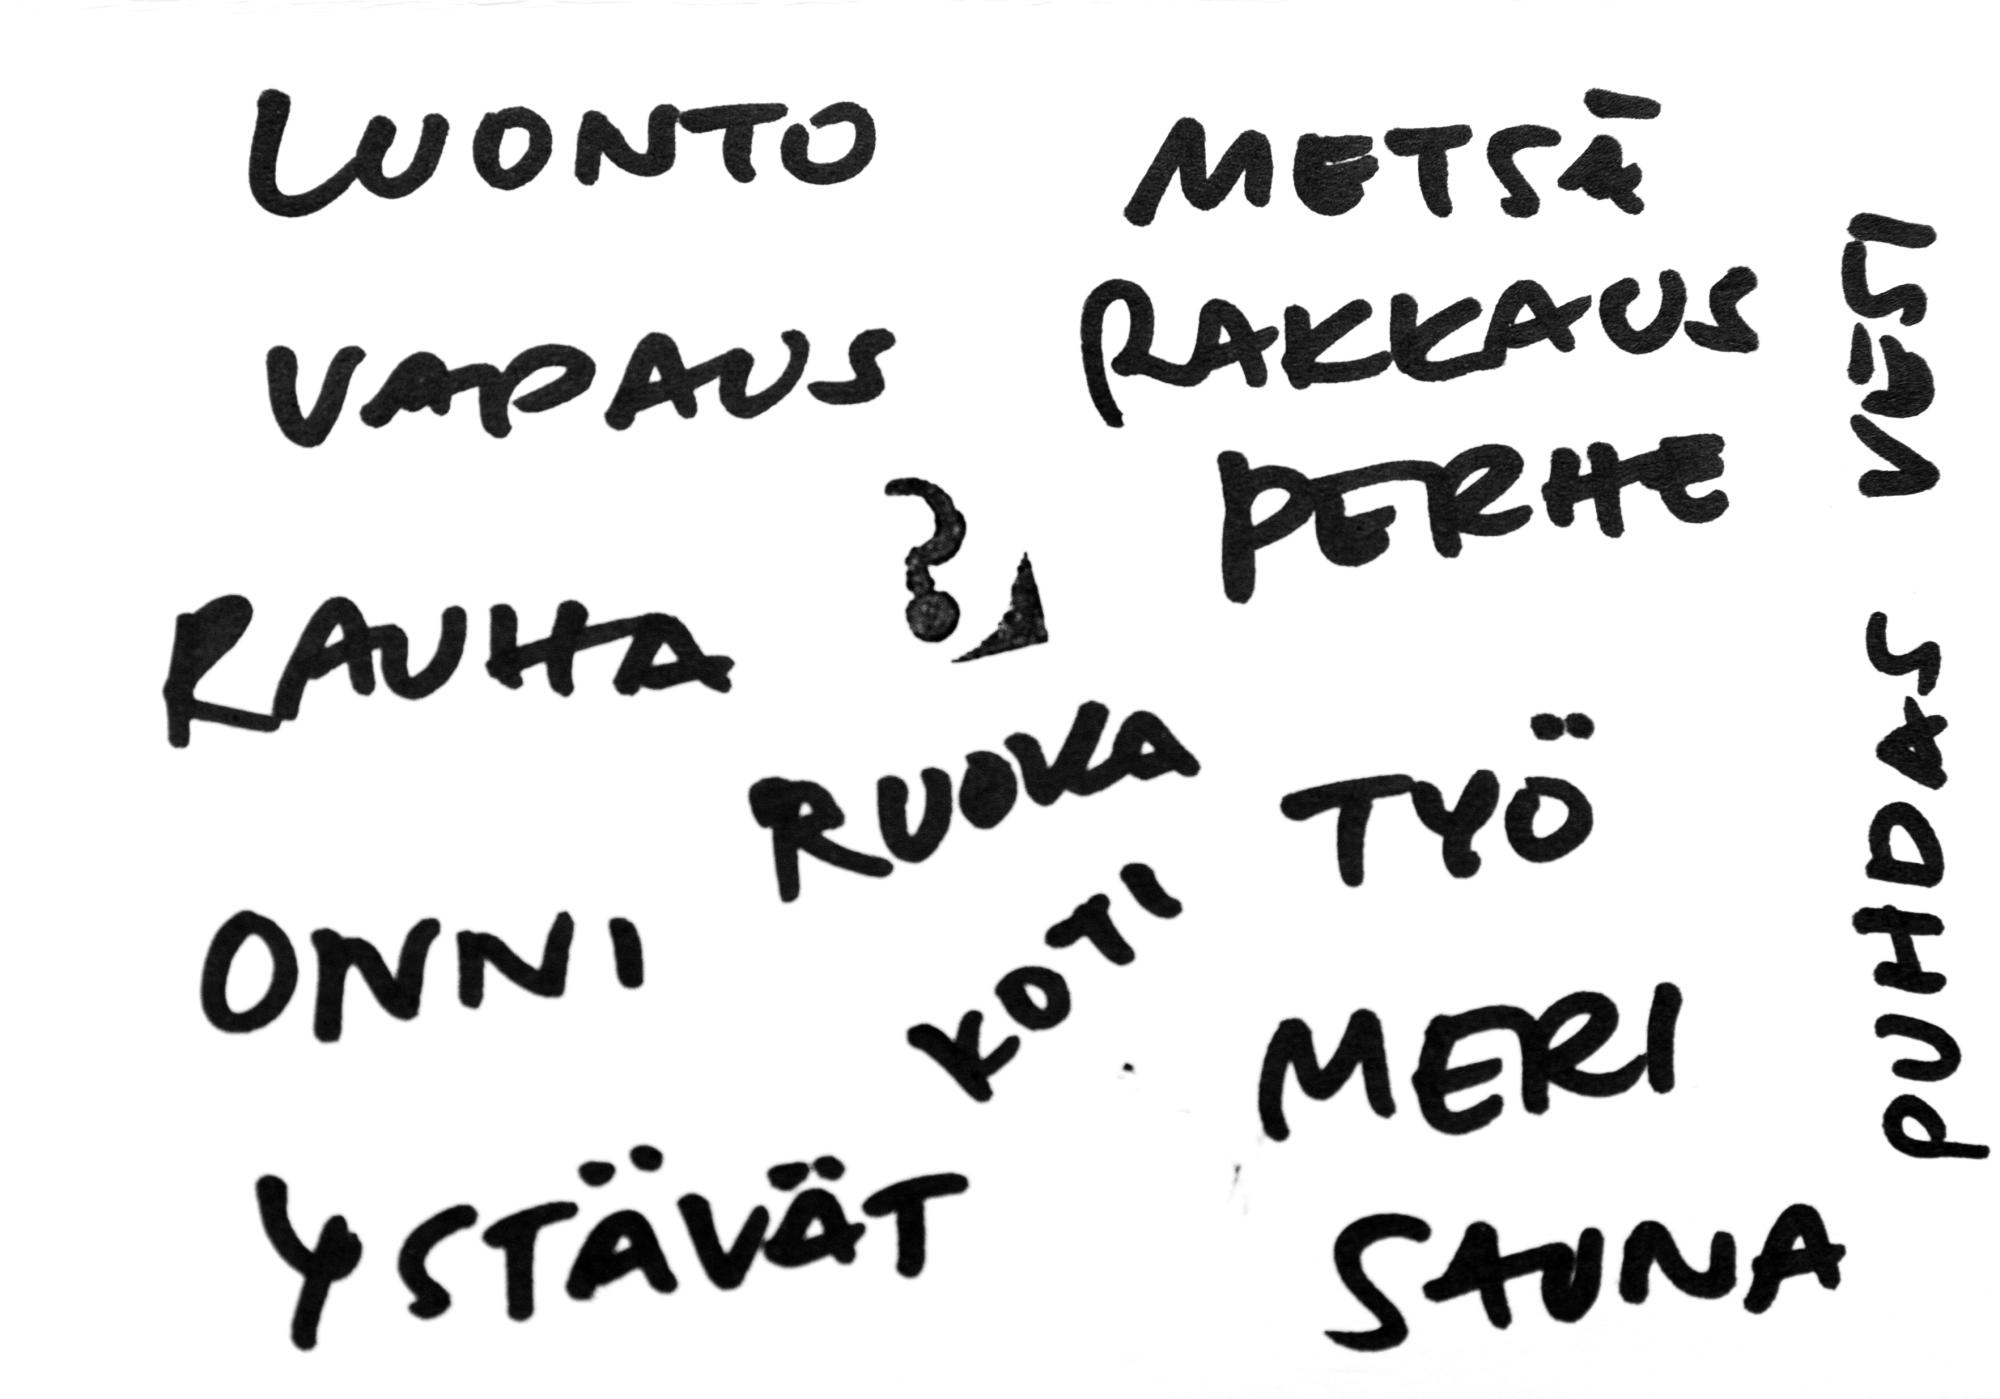 LUONTO
METSÄ
VAPAUS
RAKKAUS
PERHE
?
RAUHA
RUOKA
TYÖ
ONNI
KOTI
MERI
YSTÄVÄT
SAUNA
PUHDAS VESI